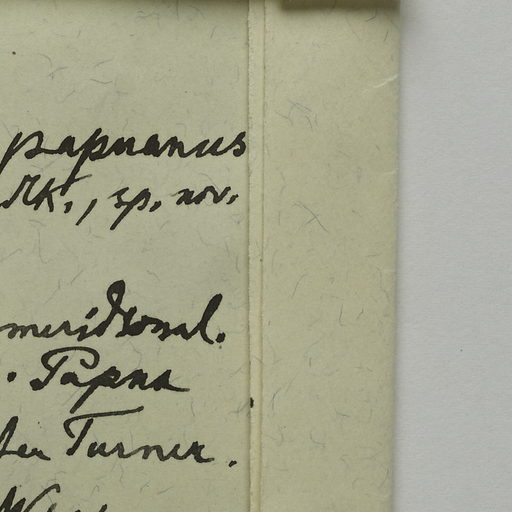 papuanus
MK., sp. nov.
meridional.
. Papua
Turner.